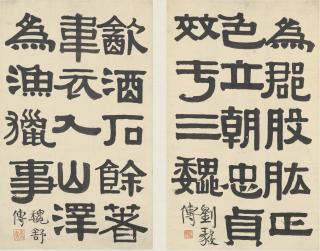 為郡股肱正
色立朝忠貞
效于三魏
劉毅傳
㱃酒石餘著
韋衣入山澤
為漁獵事
魏舒傳